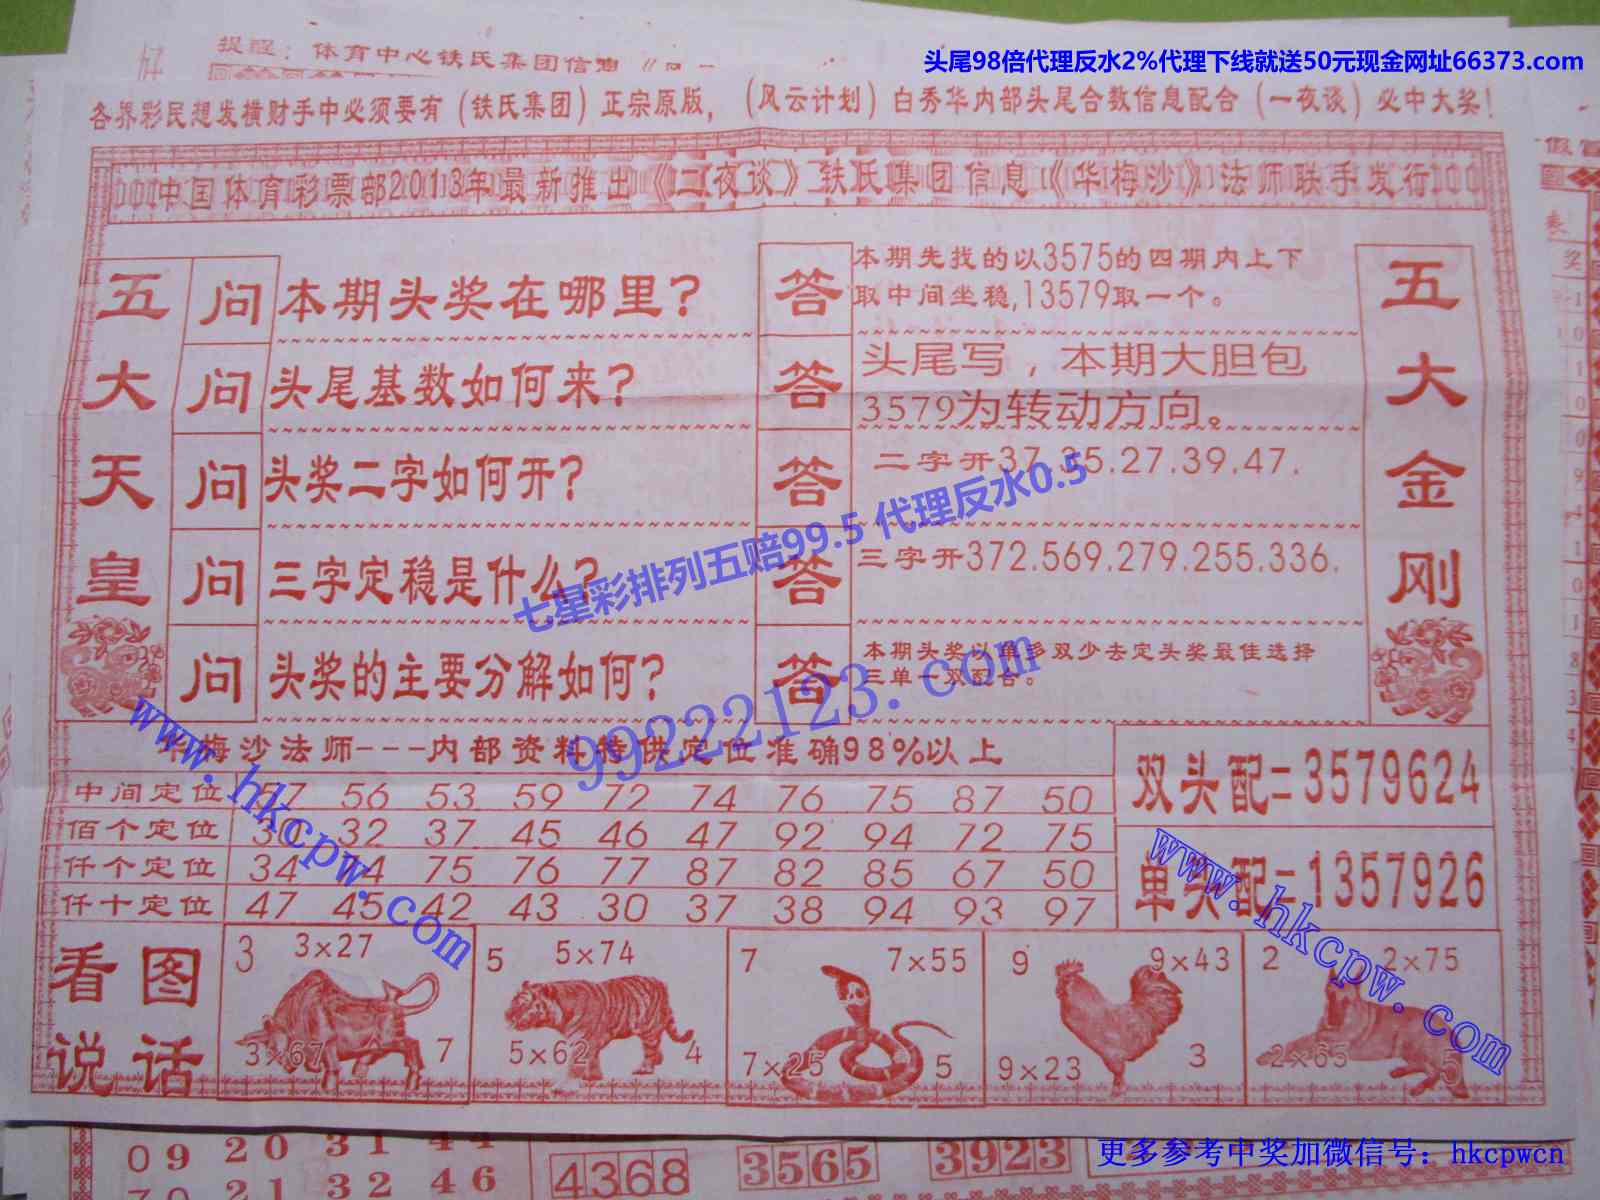 头尾98倍代理反水2%代理下线就送50元现金网址66373.com
提醒：体育中心铁氏集团信息
各界彩民想发横财手中必须要有（铁氏集团）正宗原版，（风云计划）白秀华内部头尾合数信息配合（一夜谈）必中大奖！
中国体育彩票部2013年最新推出《二夜谈》铁氏集团信息《华梅沙》法师联手发行
五大天皇
五大金刚
问 本期头奖在哪里？
答 本期先找的以3575的四期内上下
取中间坐稳,13579取一个。
问 头尾基数如何来？
答 头尾写，本期大胆包
3579为转动方向。
问 头奖二字如何开？
答 二字开37.35.27.39.47.
问 三字定稳是什么？
答 三字开372.569.279.255.336.
问 头奖的主要分解如何？
答 本期头奖以单多双少去定头奖最佳选择
三单一双配合。
七星彩排列五赔99.5 代理反水0.5
99222123.com
www.hkcpw.com
www.hkcpw.com
华梅沙法师---内部资料特供定位准确98%以上
中间定位 57 56 53 59 72 74 76 75 87 50
佰个定位 30 32 37 45 46 47 92 94 72 75
仟个定位 34 74 75 76 77 87 82 85 67 50
仟十定位 47 45 42 43 30 37 38 94 93 97
双头配=3579624
单头配=1357926
看图说话
3 3×27 3×67 7
5 5×74 5×62 4
7 7×55 7×25 5
9 9×43 9×23 3
2 2×75 2×65 5
09 20 31 44
70 21 32 46
4368 3565 3923
更多参考中奖加微信号：hkcpwcn